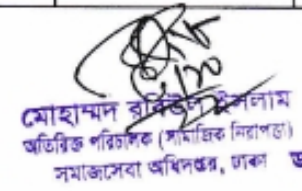 মোহাম্মদ রবিউল ইসলাম
অতিরিক্ত পরিচালক (সামাজিক নিরাপত্তা)
সমাজসেবা অধিদপ্তর, ঢাকা